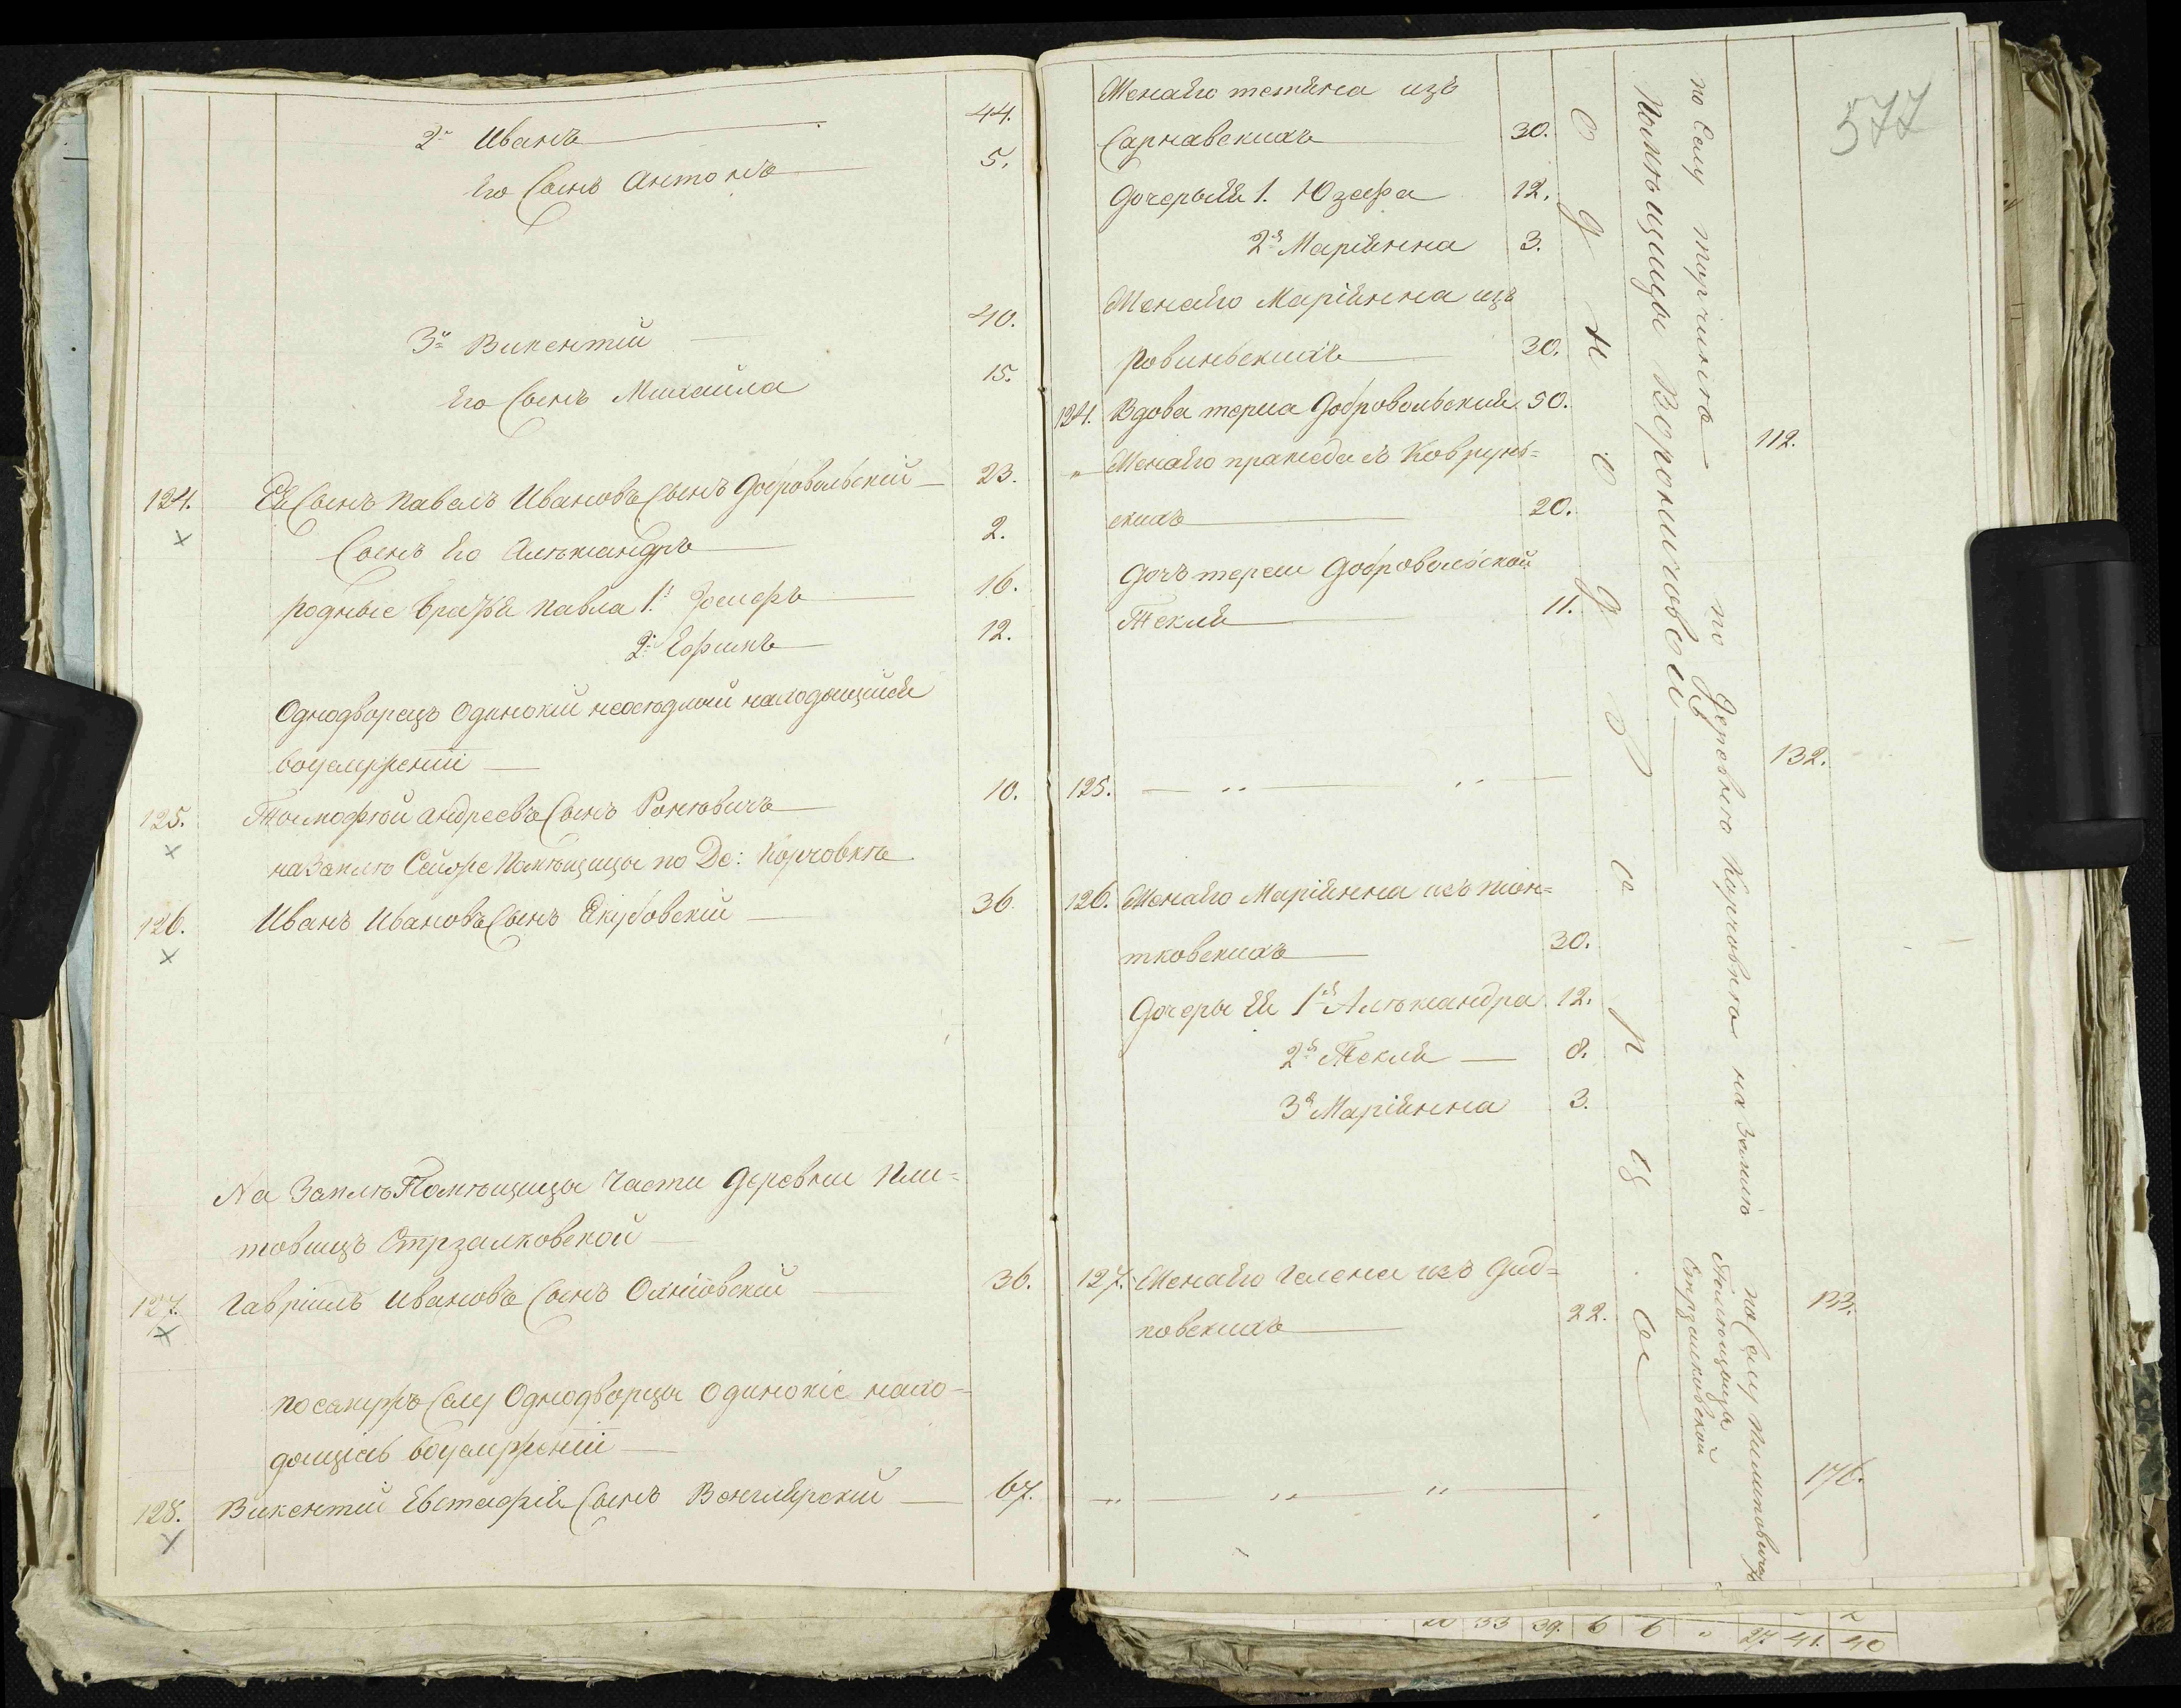 2й Иванъ 44.
Его Сынъ Антонъ 5.
3й Викентий 40.
Его Сынъ Михаила 15.
124. Ея Сынъ Павелъ Ивановъ Сынъ Добровольский 23.
Сынъ Его Алѣксандръ 2.
родные Братья Павла 1й Іосифъ 16.
2й Ефимъ 12.
Однодворецъ Одинокий неосѣдлый находящийся
воуслуженіи
125. Тимофѣй Андреевъ Сынъ 10.
на Землѣ Сей же Помѣщицы по Де: Корчовкѣ
126. Иванъ Ивановъ Сынъ Якубовский 36
На Землѣ Помѣщицы Части Деревни Пли=
товицъ Стрзалковской
127. Гавріилъ Ивановъ Сынъ 36.
по самужъ Селу Однодворцы Одинокіе нахо=
дящіесь воуслуженіи
128. Викентий Евстафій Сынъ Венглярский 67.
577
Жена Его изъ
Сарнавскихъ 30.
Дочеры Ея 1. Юзефа 12.
2я Маріянна 3.
Жена Его Маріянна изъ
Ровинскихъ 30.
124. Вдова тереса Добровольская 50.
" Жена Его пракседа съ Коврунь=
скихъ 20.
Дочь тересы Добровольской
Текля 11.
125. " "
126. Жена Его Маріянна изъ піон=
тковскихъ 30.
Дочеры Ея 1я Алѣксандра 12.
2я Текля 8.
3я Маріянна 3.
127. Жена Его Галена изъ Дид=
ковскихъ 22.
" " "
О д н о д в о р ц ы
Помѣщицы
по Селу торчину 112.
по Деревнѣ Курчовкѣ на Землѣ 132.
Помѣщицы
Стрзалковской
по Селу 133.
176.
33 39. 6 6 " 27. 41. 40